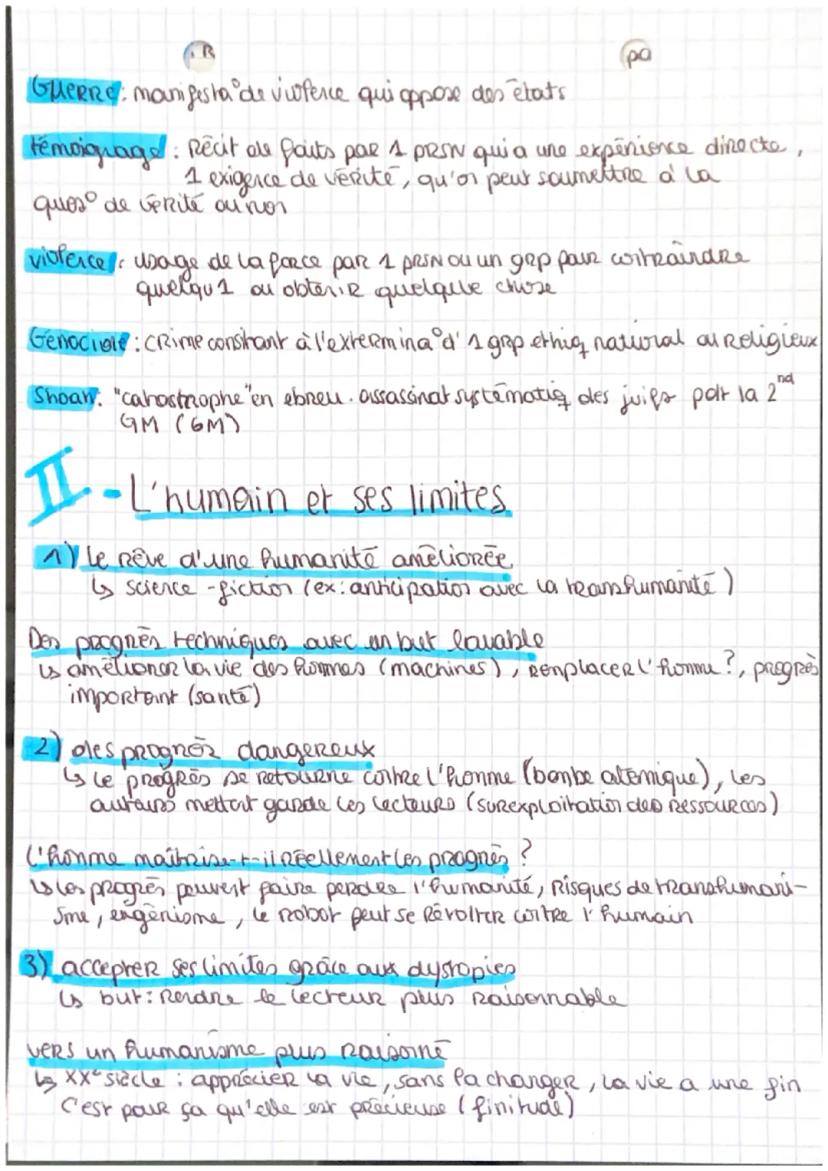 . R
pa
Guerre : manifesta° de violence qui oppose des états
témoignage : Récit de faits par 1 prsn qui a une expérience directe,
1 exigence de vérité, qu'on peut soumettre à la
ques° de vérité ou non
violence : usage de la force par 1 prsn ou un grp pour contraindre
quelqu1 ou obtenir quelque chose
Génocide : crime consitant à l'extermina° d'1 grp ethiq national ou religieux
Shoah : "cahastrophe" en ebreu. assassinat systématiq des juifs pdt la 2nd
GM (6M)
II - L'humain et ses limites
1) Le rêve d'une humanité améliorée
↳ science-fiction (ex: anticipation avec la transhumanité)
Des progrès techniques avec un but louable
↳ améliorer la vie des hommes (machines), remplacer l'homme ?, progrès
important (santé)
2) des progrès dangereux
↳ Le progrès se retourne contre l'homme (bombe atomique), les
auteurs mettent garde les lecteurs (surexploitation des ressources)
L'homme maîtrise-t-il réellement les progrès ?
↳ les progrès peuvent faire perdre l'humanité, risques de transhumani-
sme, eugénisme, le robot peut se révolter contre l'humain
3) accepter ses limites grâce aux dystopies
↳ but : Rendre le lecteur plus raisonnable
vers un humanisme plus raisonné
↳ XXe siècle : apprécier la vie, sans la changer, la vie a une fin
C'est pour ça qu'elle est précieuse (finitude)